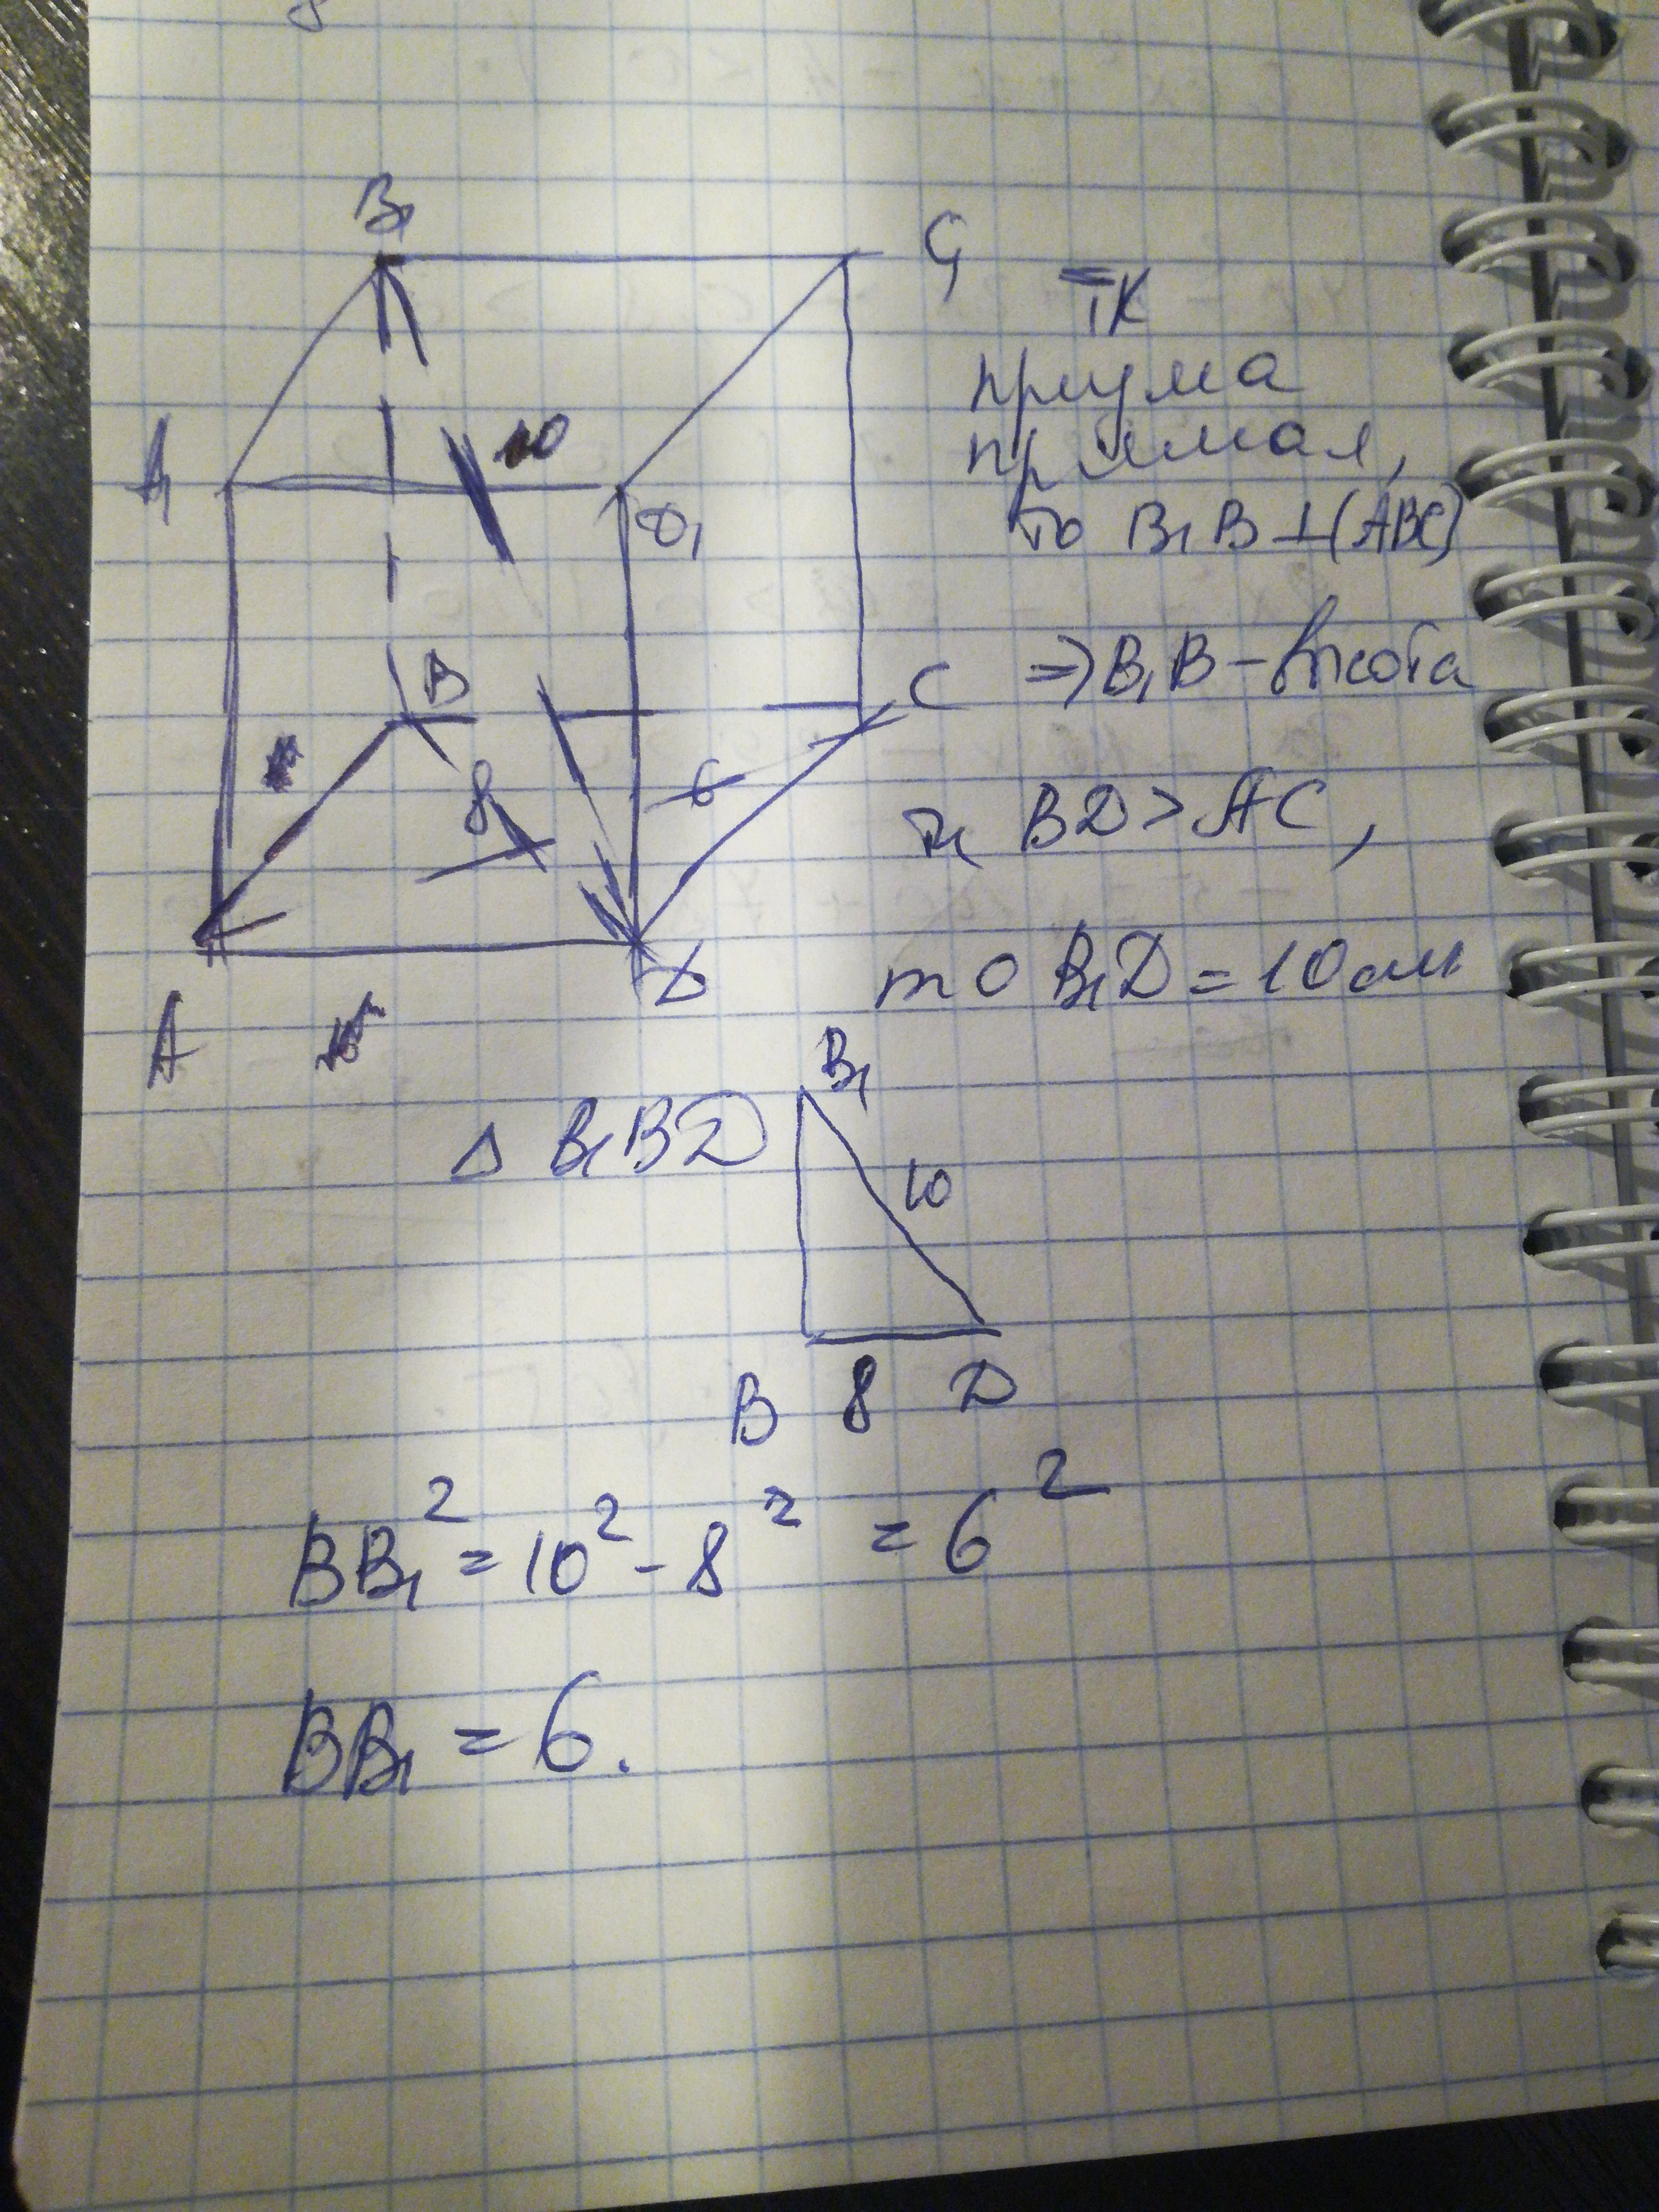 B₁
C₁
A₁
10
D₁
B
C
8
6
A
D
тк
призма
прямая,
то B₁B⊥(ABC)
⇒B₁B – высота
тк BD>AC,
то B₁D=10см
Δ B₁BD
B₁
10
B 8 D
BB₁² = 10² - 8² = 6²
BB₁ = 6.